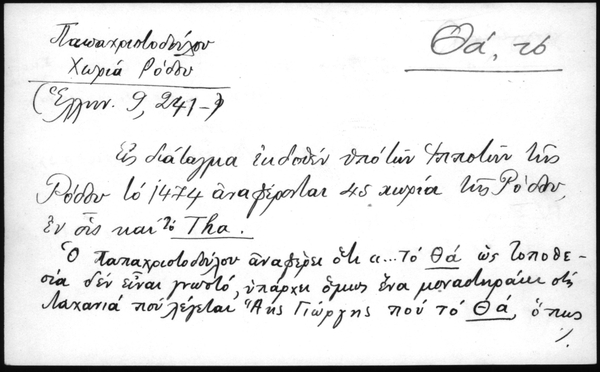 Παπαχριστοδούλου
Χωριά Ρόδου
(Ἑλλην. 9, 241-)
Θά, τό
Εἰς διάταγμα ἐκδοθέν ὑπό τῶν Ἱπποτῶν τῆς
Ρόδου τό 1474 ἀναφέρονται 45 χωρία τῆς Ρόδου,
ἐν οἷς καί τό Tha.
Ὁ Παπαχριστοδούλου ἀναφέρει ὅτι «...τό Θά ὡς τοποθε-
σία δέν εἶναι γνωστό, ὑπάρχει ὅμως ἕνα μοναστηράκι στή
Λαχανιά πού λέγεται Ἅης Γιώργης πού τό Θά, ὅπως
./.